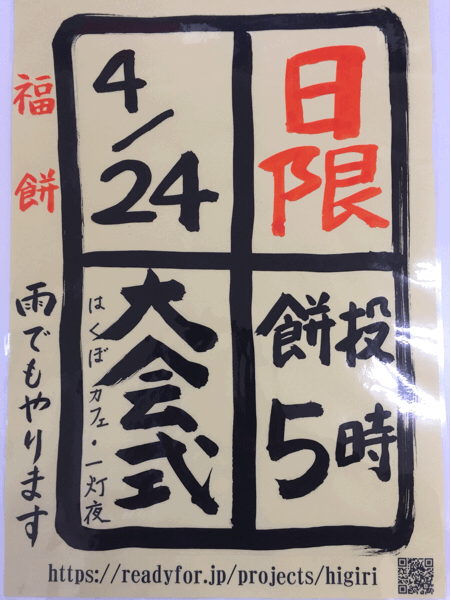 日限
4/24
餅投
5時
大会式
はくぼカフェ・一灯夜
福餅
雨でもやります
https://readyfor.jp/projects/higiri